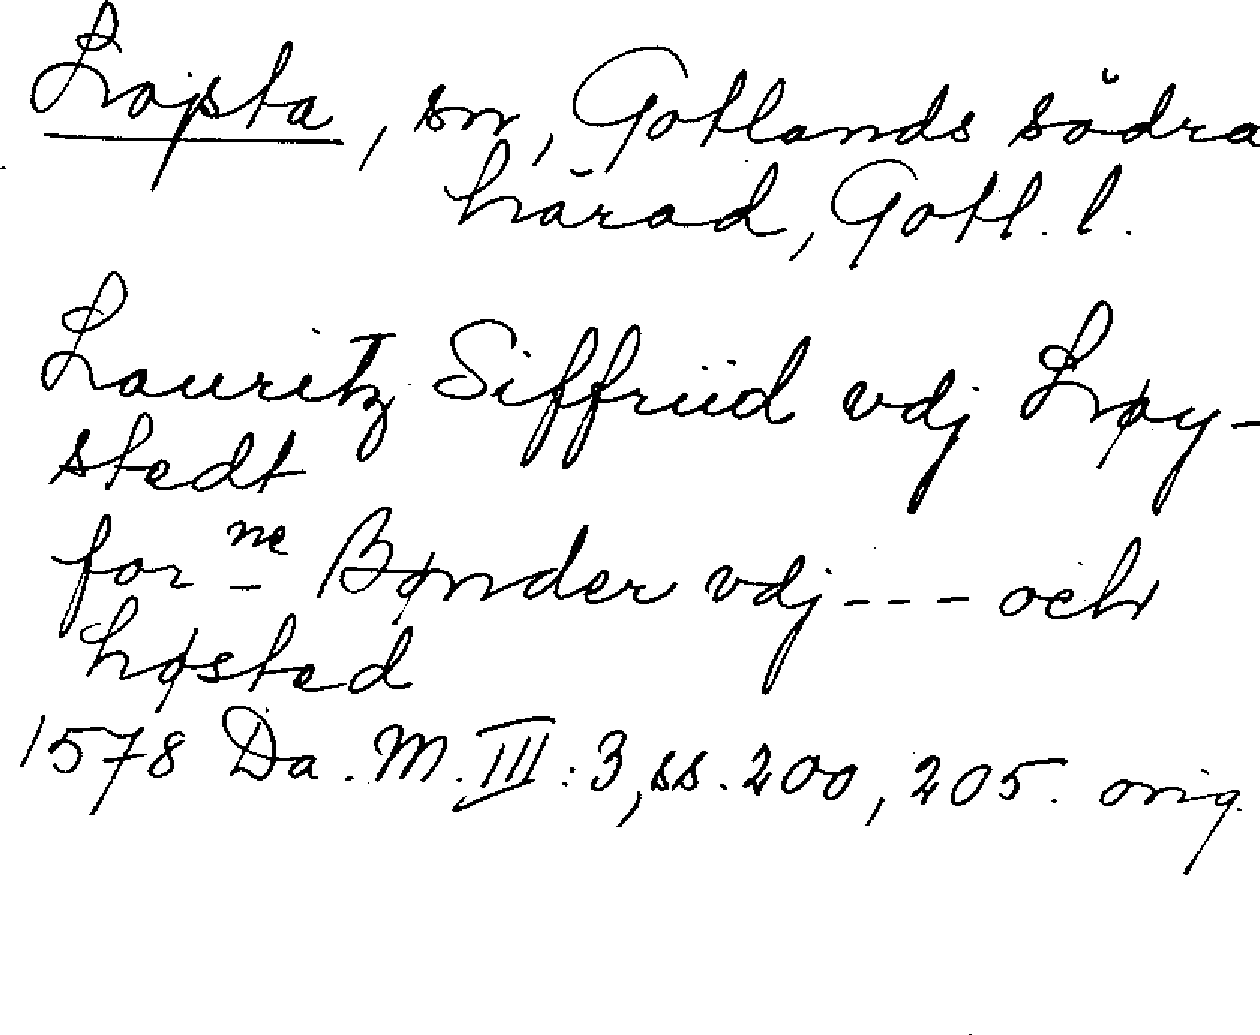 Lojsta, sn, Gotlands södra
härad, Gotl. l.
Lauritz Siffriid vdj Løy-
stedt
for ne Bønder vdj --- och
Løsted
1578 Da. M. III: 3, ss. 200, 205. orig.